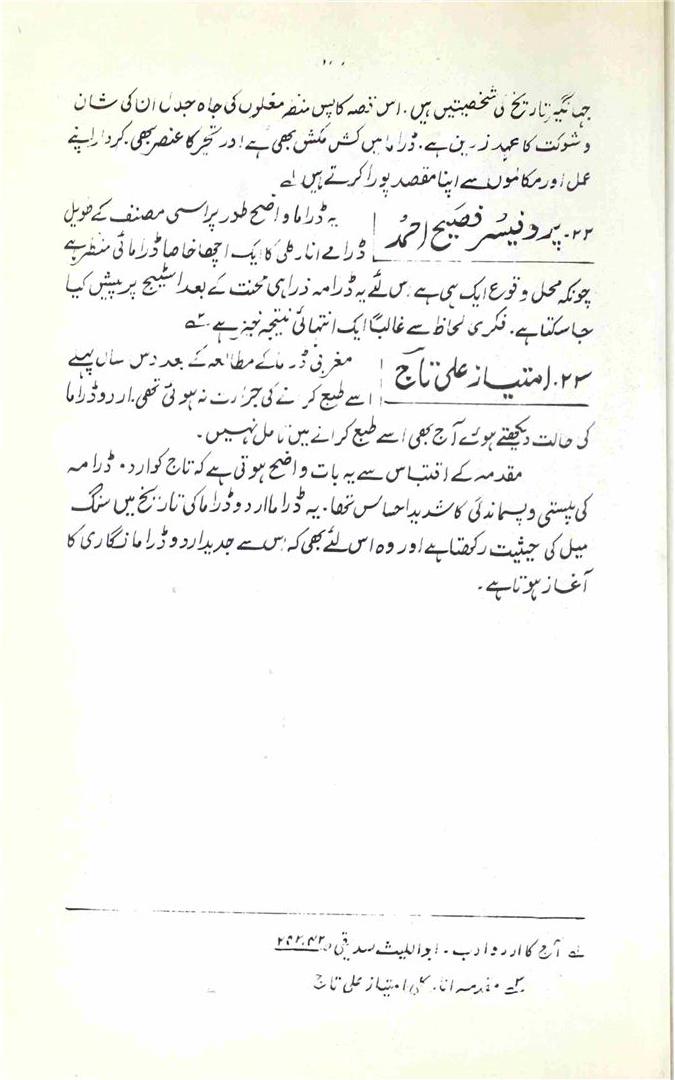 جہانگیر تاریخ کی شخصیتیں ہیں. اس قصہ کا پس منظر مغلوں کی جاہ جلال ان کی شان
و شوکت کا عہد زرین ہے. ڈراما میں کش مکش بھی ہے اور تحیر کا عنصر بھی. کردار اپنے
عمل اور مکالموں سے اپنا مقصد پورا کرتے ہیں ۱ے
۲۲. پروفیسر فصیح احمد
یہ ڈراما واضح طور پر اسی مصنف کے طویل
ڈرامے انارکلی کا ایک اچھا خاصا ڈرامائی منظر ہے
چونکہ محل وقوع ایک ہی ہے اس لئے یہ ڈرامہ ذرا ہی محنت کے بعد اسٹیج پر پیش کیا
جا سکتا ہے. فکری لحاظ سے غالباً ایک انتہائی نتیجہ خیز ہے ۲ے
۲۳. امتیاز علی تاج
مغربی ڈرما کے مطالعہ کے بعد دس سال پہلے
اسے طبع کرانے کی جرارت نہ ہوئی تھی. اردو ڈراما
کی حالت دیکھتے ہوئے آج بھی اسے طبع کرانے میں تامل نہیں۔
مقدمہ کے اقتباس سے یہ بات واضح ہوتی ہے کہ تاج کو اردو ڈرامہ
کی پستی و پسماندگی کا شدید احساس تھا. یہ ڈراما اردو ڈراما کی تاریخ میں سنگ
میل کی حیثیت رکھتا ہے اور وہ اس لئے بھی کہ اس سے جدید اردو ڈراما نگاری کا
آغاز ہوتا ہے۔
۱ے آج کا اردو ادب۔ ابواللیث صدیقی
۲ے مقدمہ انارکلی امتیاز علی تاج